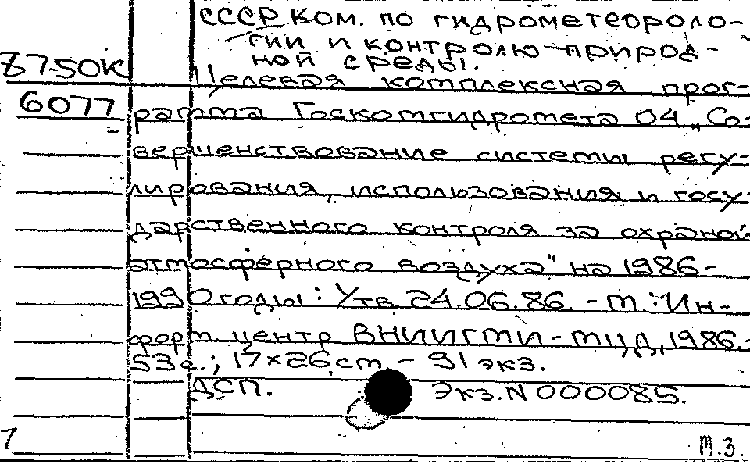 СССР. Ком. по гидрометеороло-
гии и контролю природ-
ной среды.
8750К Целевая комплексная прог-
6077 рамма Госкомгидромета 04 „Со-
вершенствование системы регу-
лирования, использования и госу-
дарственного контроля за охраной
атмосферного воздуха" на 1986-
1990 годы: Утв. 24.06.86. - М.: Ин-
форм. центр ВНИИГМИ-МЦД, 1986.-
53 с.; 17×26 см - 91 экз.
ДСП. Экз. N 000085.
1 м.з.